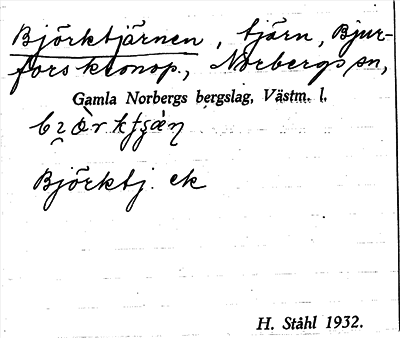 Björktjärnen, tjärn, Bjur-
fors kronop., Norbergs sn,
Gamla Norbergs bergslag, Västm. l.
Björktj. ek
H. Ståhl 1932.